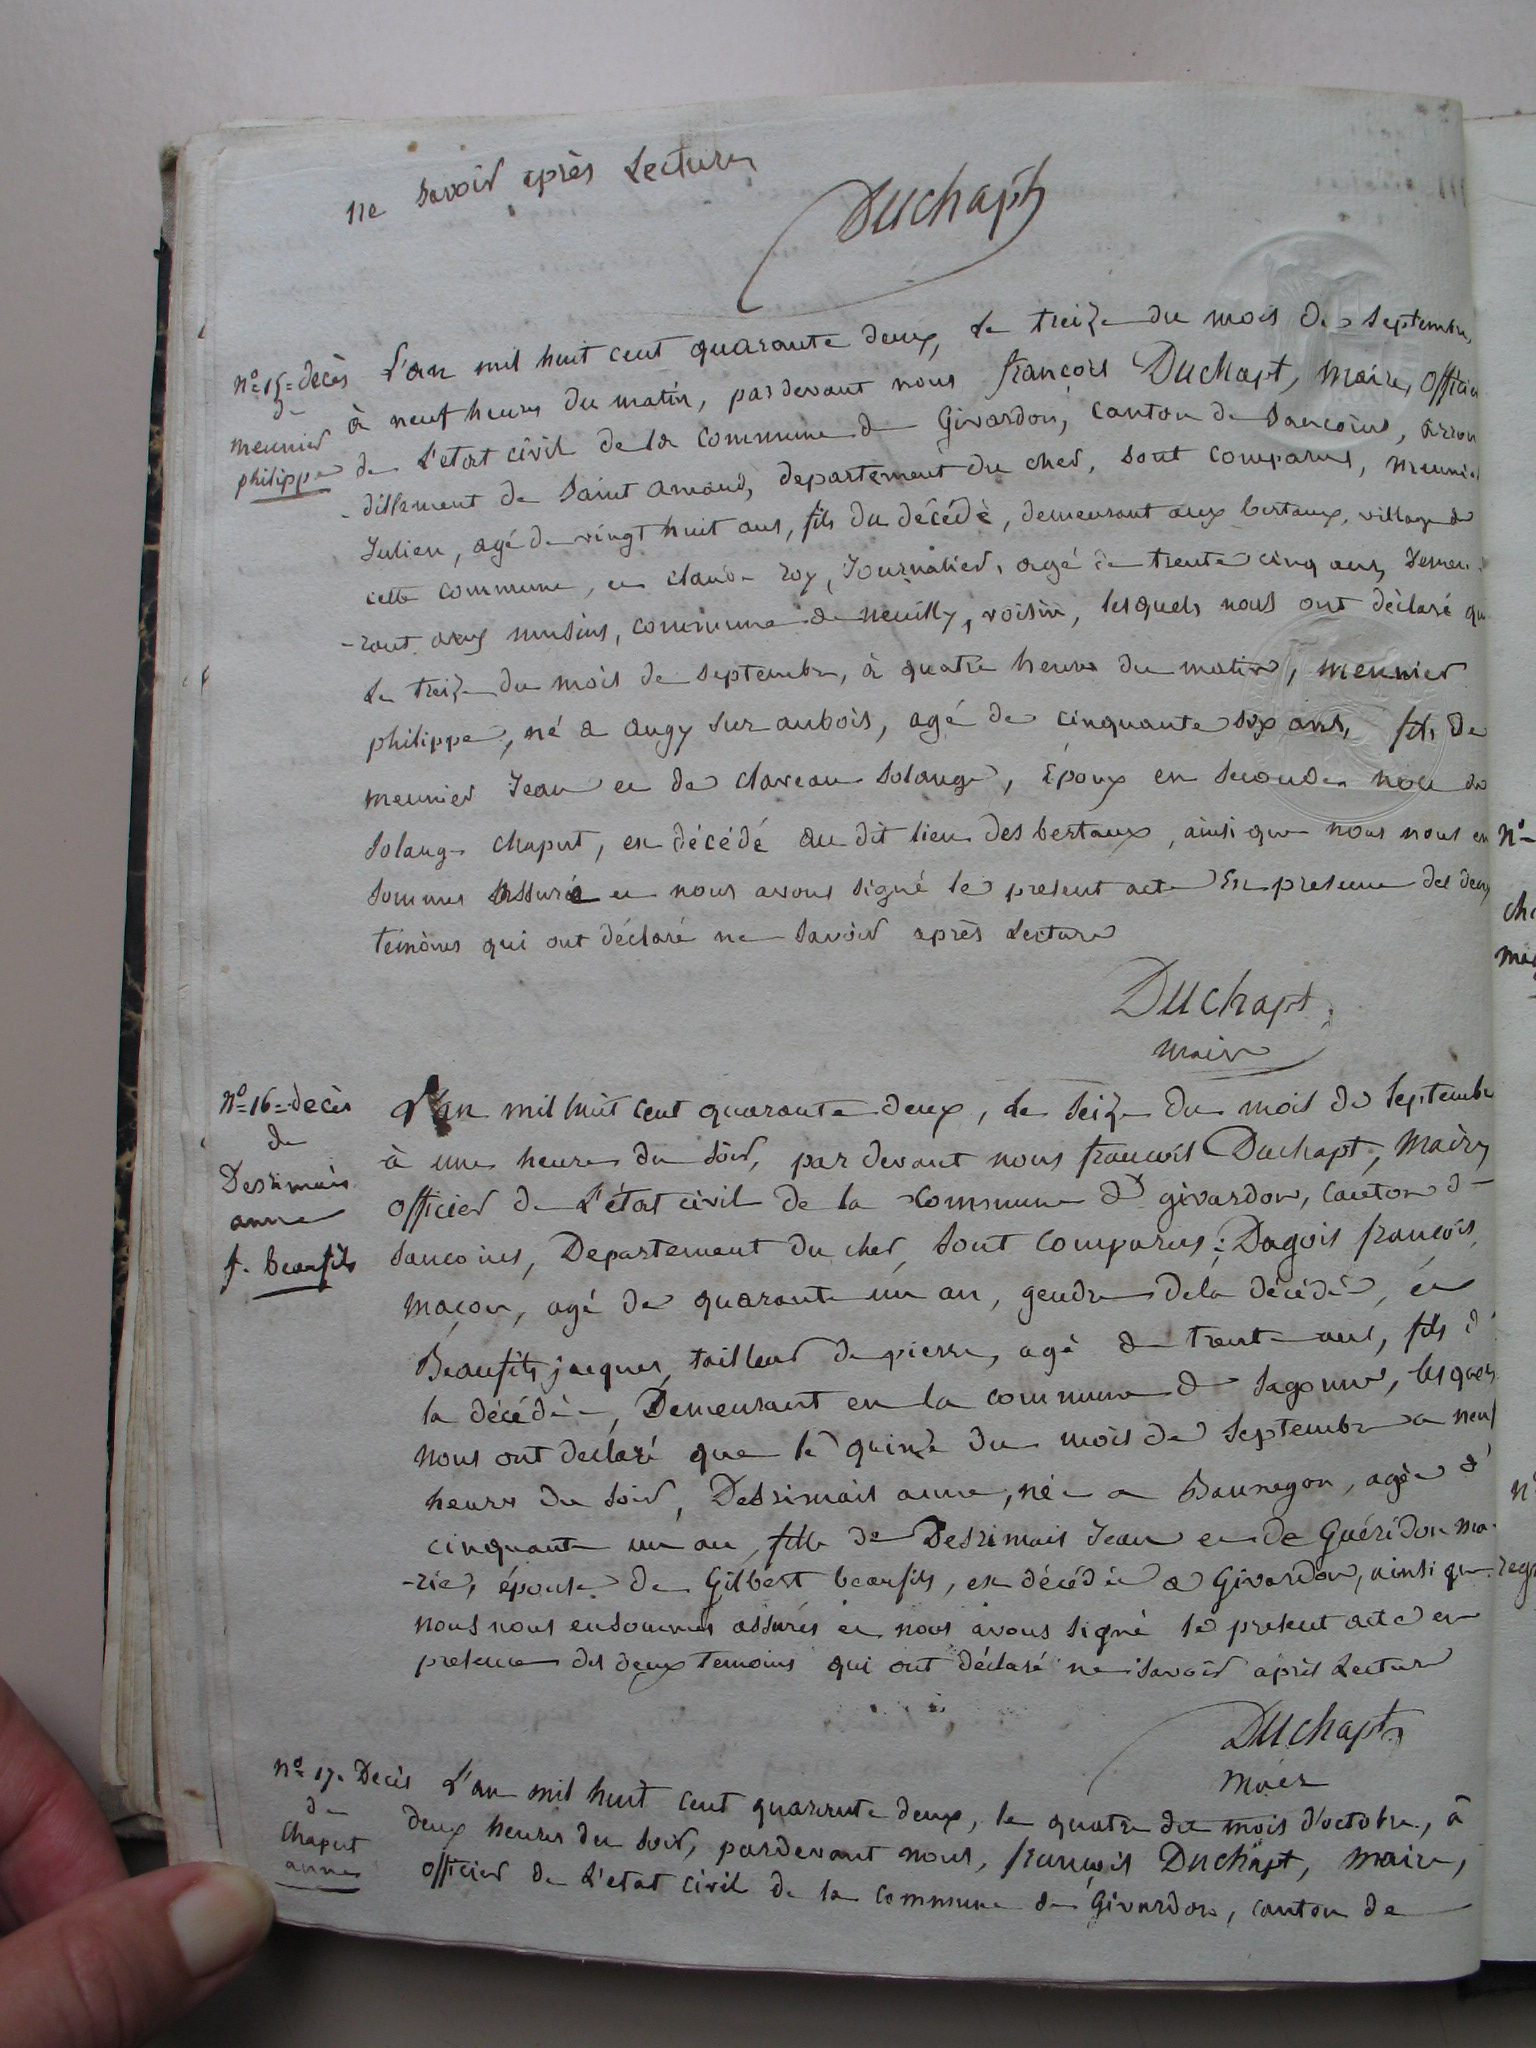 ne savoir après Lecture
Duchapt
n° 15 = décès
de
meunier
philippe
L'an mil huit cent quarante deux, le treize du mois de septembre,
à neuf heures du matin, pardevant nous françois Duchapt, maire, officier
de L'état civil de la commune de Givardon, canton de Sancoins, arron
-dissement de Saint amand, departement du cher, sont comparus, meunier
Julien, agé de vingt huit ans, fils du décédé, demeurant aux bertaux, village de
cette commune, et claude roy, Journalier, agé de trente cinq ans, demeu
-rant aux musins, commune de neuilly, voisin, lesquels nous ont déclaré que
le treize du mois de septembre, à quatre heures du matin, meunier
philippe, né a augy sur aubois, agé de cinquante six ans, fils de
meunier Jean et de claveau Solange, Époux en seconde noce de
Solange chaput, est décédé au dit lieu des bertaux, ainsi que nous nous en
sommes assuré et nous avons signé le present acte En presence des deux
temoins qui ont déclaré ne savoir après Lecture
Duchapt
maire
n° 16 = décès
de
Desrimais
anne
f. beaufils
L'an mil huit cent quarante deux, le seize du mois de septembre
à une heure du soir, par devant nous francois Duchapt, maire,
officier de L'état civil de la commune de givardon, canton de
Sancoins, Departement du cher, sont comparus : Dagois francois,
maçon, agé de quarante un an, gendre de la décédée, et
Beaufils jacques, tailleur de pierre, agé de trente ans, fils de
la décédée, Demeurant en la commune de Sagonne, lesquels
nous ont declaré que le quinze du mois de septembre a neuf
heures du soir, Desrimais anne, née a Bannegon, agée de
cinquante un an, fille de Desrimais Jean et de Guéridon ma
-rie, épouse de Gilbert beaufils, est décédée a Givardon, ainsi que
nous nous en sommes assurés et nous avons signé le present acte en
presence des deux temoins qui ont déclaré ne savoir après Lecture
Duchapt
maire
n° 17. Décès
de
Chaput
anne
L'an mil huit cent quarante deux, le quatre du mois d'octobre, à
deux heures du soir, pardevant nous, françois Duchapt, maire,
officier de L'état civil de la commune de Givardon, canton de
n°